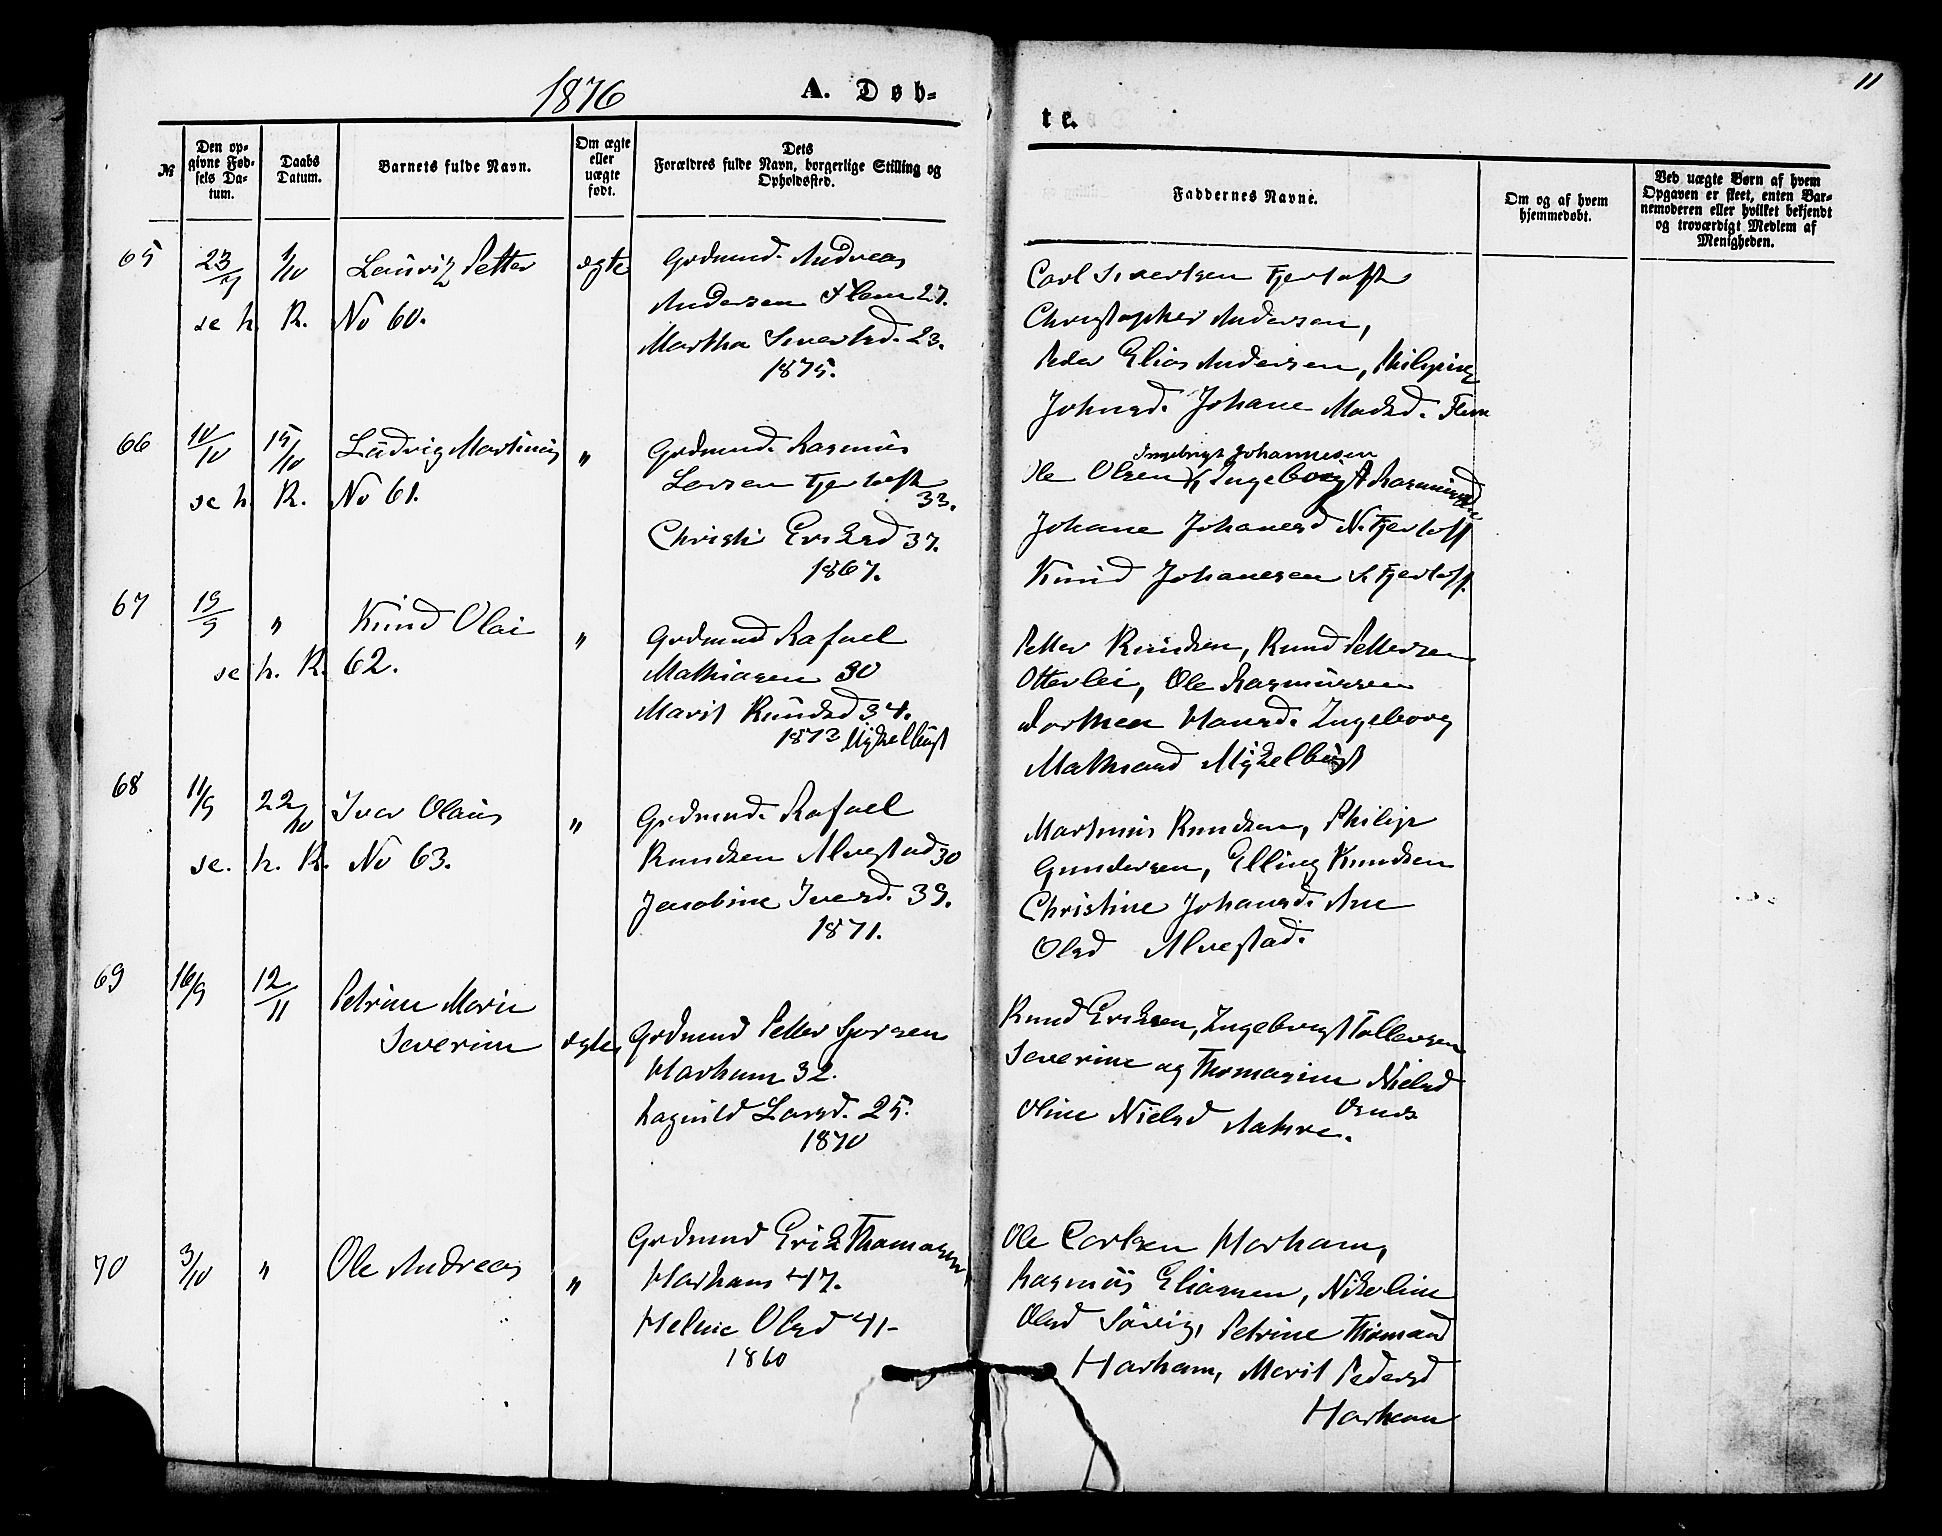 1876
A. Døb-
te.
11
№
Den op-
givne Fød-
sels Da-
tum.
Daabs
Datum.
Barnets fulde Navn.
Om ægte
eller
uægte
født.
Dets
Forældres fulde Navn, borgerlige Stilling og
Opholdssted.
Faddernes Navne.
Om og af hvem
hjemmedøbt.
Ved uægte Børn af hvem
Opgaven er skeet, enten Bar-
nemoderen eller hvilket bekjendt
og troværdigt Medlem af
Menigheden.
65 23/9 1/10 Lauriz Petter ægte Grdmnd. Andreas
Andersen Flem 27.
se h. R. No 60.
Martha Sivertsd. 23.
1875.
Carl Sivertsen Fjertoft
Christopher Andersen,
Peder Elias Andersen,
Johnsd. Johane Madsd. Flem
66 10/10 15/10 Ludvig Martinus " Grdmnd. Rasmus
Larsen Fjertoft
33.
se h. R. No 61.
Christi Eriksd 37.
1867.
Ingebrigt Johannesen
Ole Olsen Ingeborg Rasmusd
Johane Johanesd N. Fjertoft
Knud Johanesen S. Fjertoft.
67 19/9 " Knud Olai " Grdmnd Rafael
Mathiasen 30
se h. R. 62.
Marit Knudsd 34.
1873 Myklebust
Petter Knudsen, Knud Pettersen
Otterlei, Ole Rasmussen
Dorthea Hansd. Ingeborg
Mathiasd Myklebust
68 11/9 22/10 Iver Olaus " Grdmnd. Rafael
Knudsen Alvestad 30
se. h. R. No 63.
Jacobine Iversd. 39.
1871.
Martinus Knudsen, Philip
Gundersen, Elling Knudsen
Christine Johansd. Ane
Olsd Alvestad.
69 16/9 12/11 Petrine Marie
Severine ægte Grdmnd Petter Sjursen
Harham 32.
Ragnild Larsd. 25.
1870
Knud Eriksen, Ingebrigt Tollevsen
Severine og Thomasine Nielsd
Oline Nielsd
70 3/10 " Ole Andreas " Grdmnd Erik Thomasen
Harham 47.
Helene Olsd 41-
1860
Ole Carlsen Harham,
Rasmus Eliassen, Nikoline
Olsd Søvig, Petrine Thomasd
Harham, Marit Pedersd
Harham